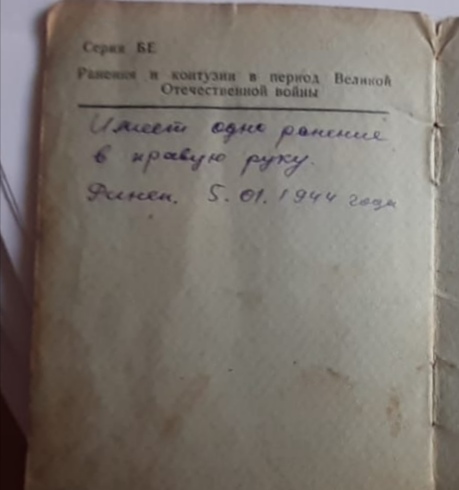 Серия БЕ
Ранения и контузии в период Великой
Отечественной войны
Имеет одно ранение
в правую руку.
5.01.1944 года